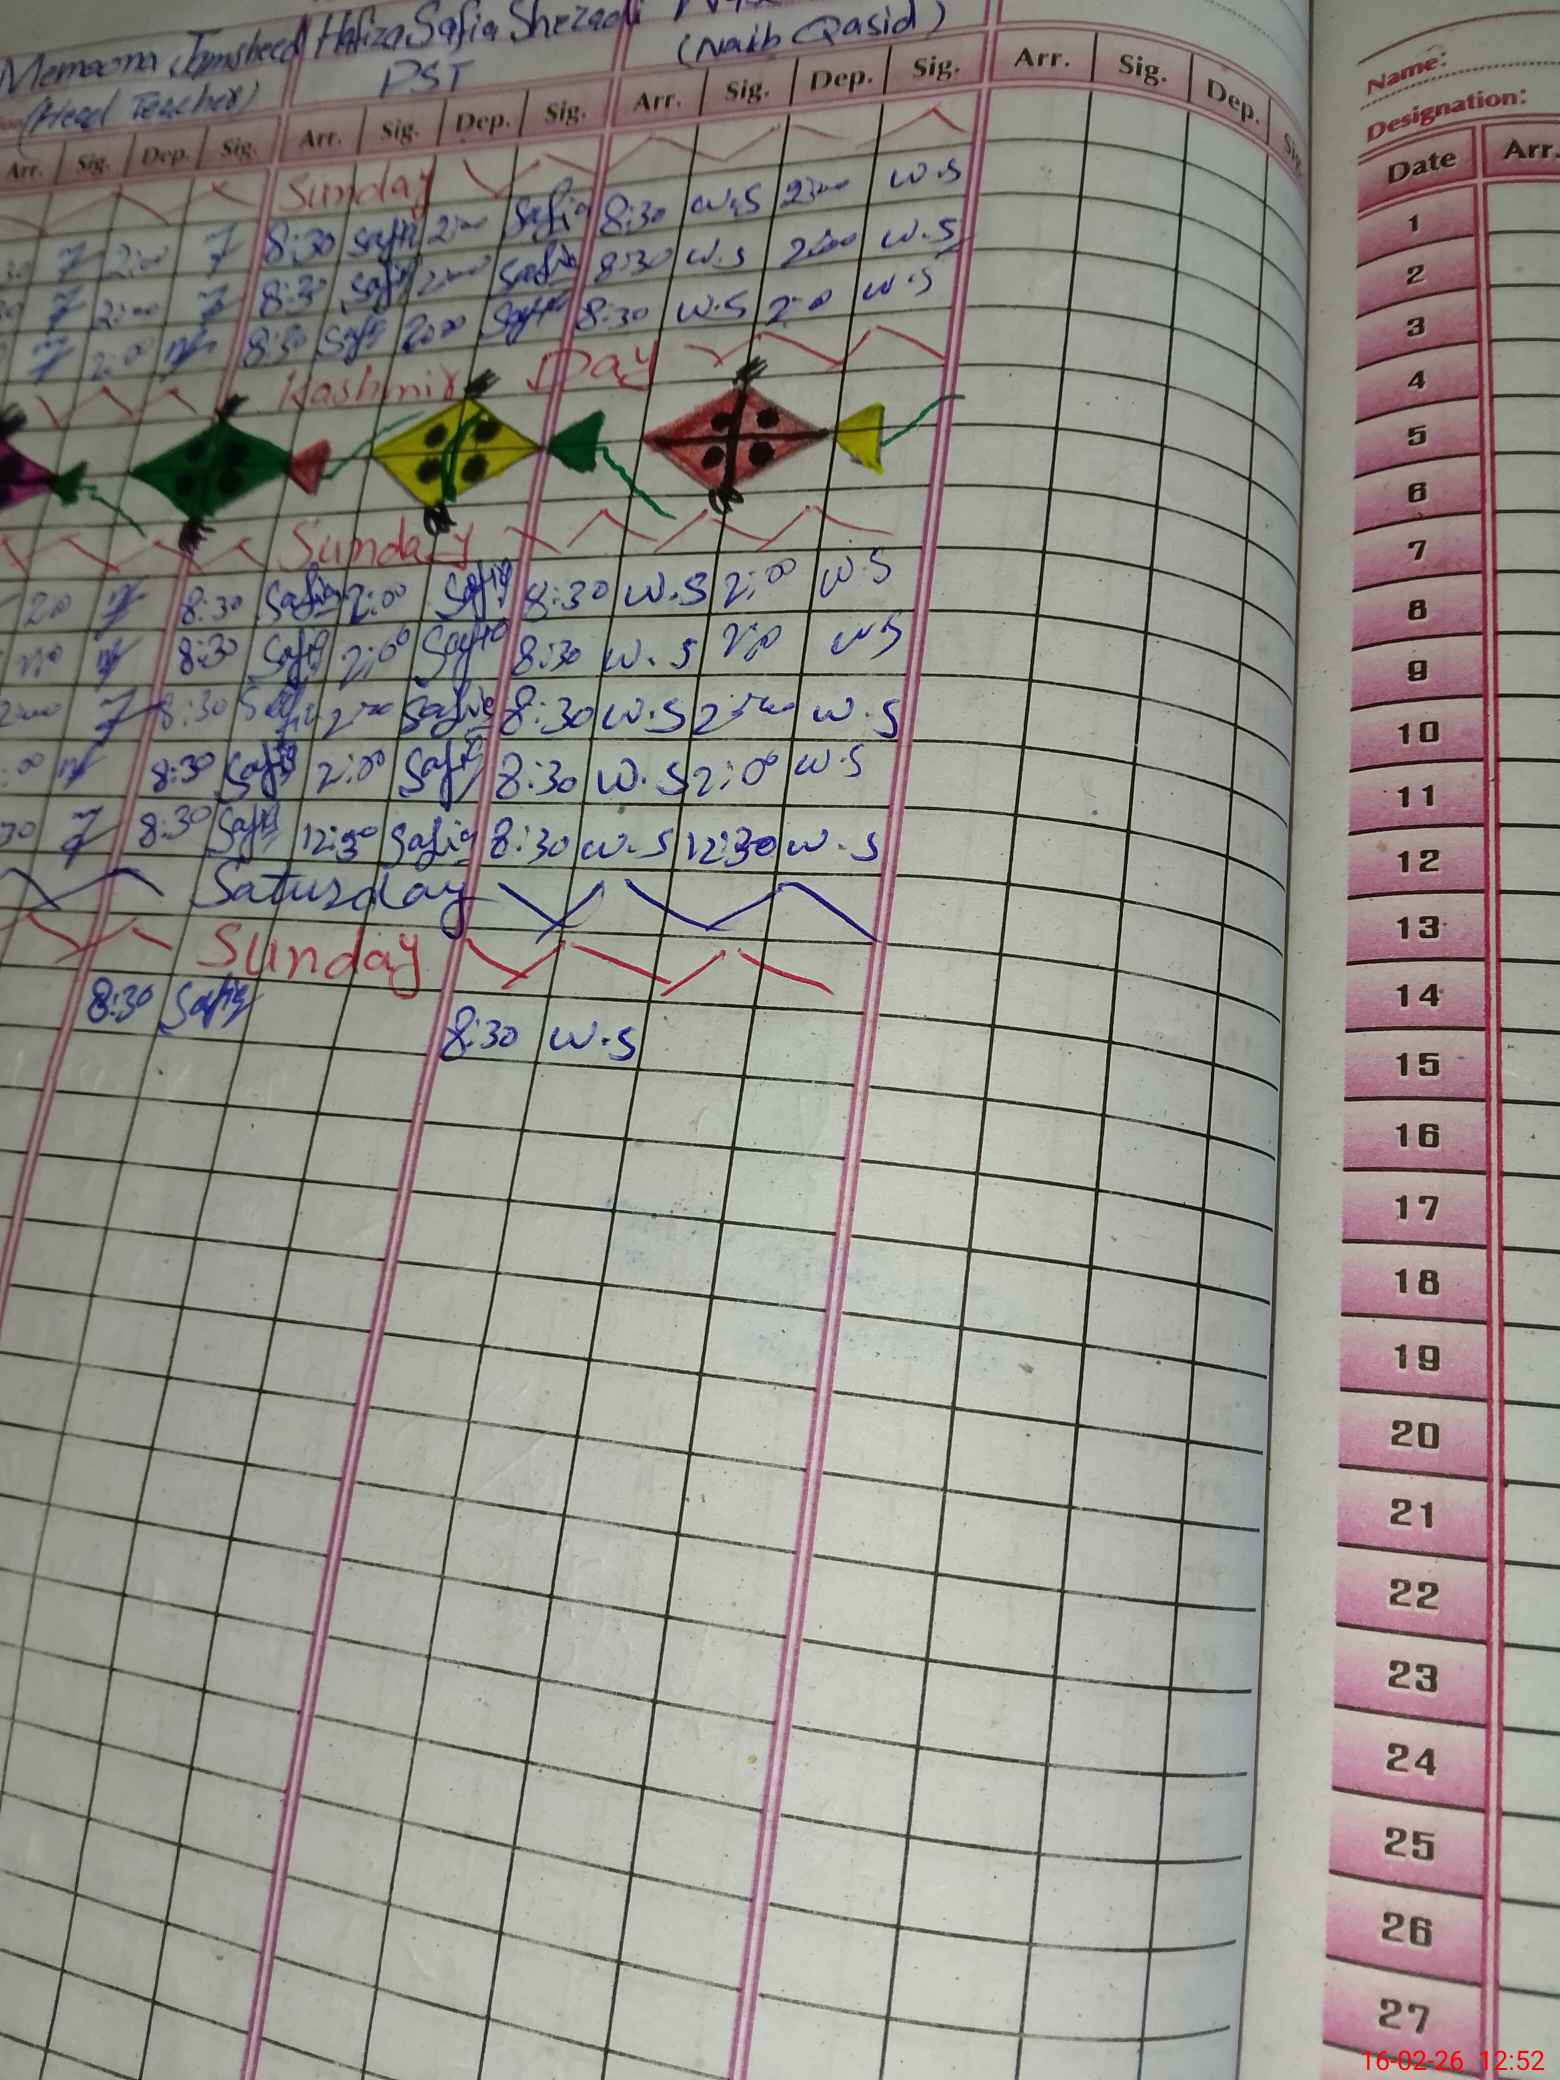 Memoona Jamsheed Hafiza Safia Shezadi
(Head Teacher) PST (Naib Qasid)
Arr. Sig. Dep. Sig. Arr. Sig. Dep. Sig. Arr. Sig. Dep. Sig. Arr. Sig. Dep. Sig.
Sunday
2:00 8:30 Safia 2:00 Safia 8:30 W.S 2:00 W.S
2:00 8:30 Safia 2:00 Safia 8:30 W.S 2:00 W.S
2:00 8:30 Safia 2:00 Safia 8:30 W.S 2:00 W.S
Kashmir Day
Sunday
2:00 8:30 Safia 2:00 Safia 8:30 W.S 2:00 W.S
8:30 Safia 2:00 Safia 8:30 W.S 2:00 W.S
2:00 8:30 Safia 2:00 Safia 8:30 W.S 2:00 W.S
:00 8:30 Safia 2:00 Safia 8:30 W.S 2:00 W.S
30 8:30 Safia 12:30 Safia 8:30 W.S 12:30 W.S
Saturday
Sunday
8:30 Safia 8:30 W.S
Name:
Designation:
Date Arr.
1
2
3
4
5
6
7
8
9
10
11
12
13
14
15
16
17
18
19
20
21
22
23
24
25
26
27
16-02-26 12:52